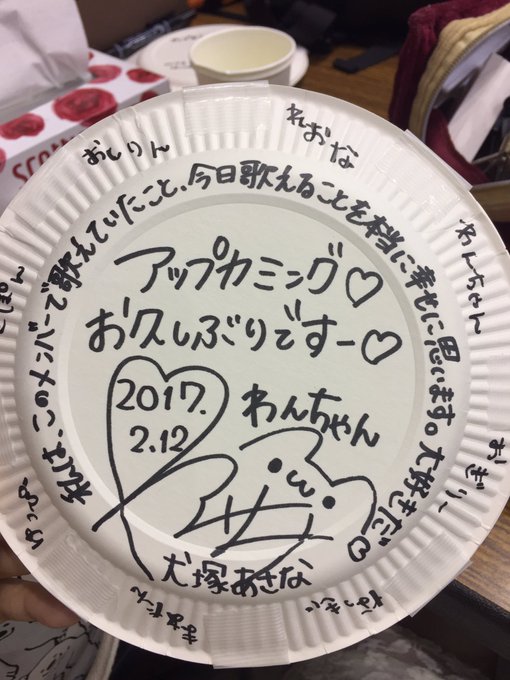 アップカミング♡
お久しぶりですー♡
2017.
2.12
わんちゃん
犬塚あさな
私は、このメンバーで歌えていたこと、今日歌えることを本当に幸せに思います。大好きだ♡
おしりん
れおな
わんちゃん
おぎりー
なっきぃ
まぁたん